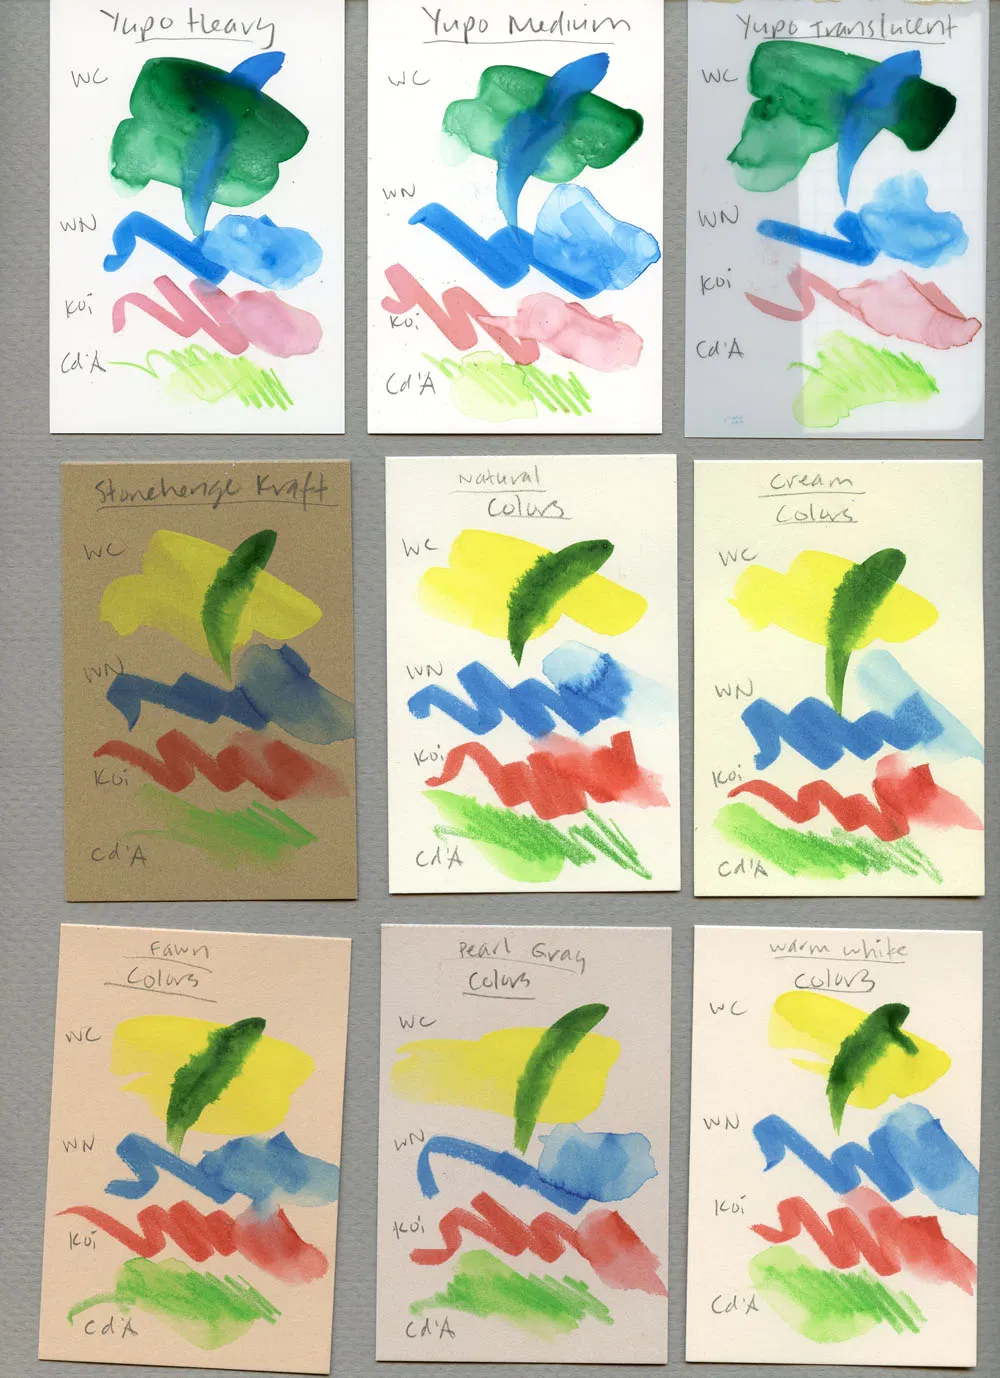 Yupo Heavy
WC
WN
Koi
Cd'A
Yupo Medium
WC
WN
Koi
Cd'A
Yupo Translucent
WC
WN
Koi
Cd'A
Stonehenge Kraft
WC
WN
Koi
Cd'A
Natural
Colors
WC
WN
Koi
Cd'A
Cream
Colors
WC
WN
Koi
Cd'A
Fawn
Colors
WC
WN
Koi
Cd'A
Pearl Gray
Colors
WC
WN
Koi
Cd'A
Warm White
Colors
WC
WN
Koi
Cd'A